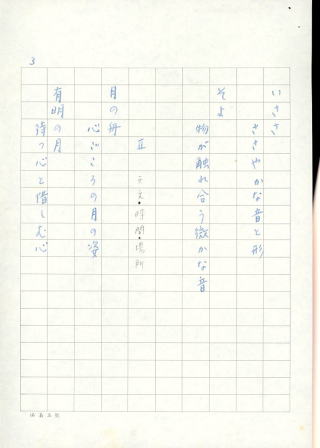 3
いささ
ささやかな音と形
そよ
物が触れ合う微かな音
Ⅱ うえ・時間・場所
月の舟
心ごころの月の姿
有明の月
待つ心と惜しむ心